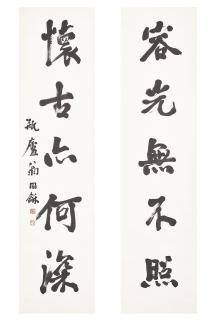 容光無不照
懷古亦何深
瓶廬翁同龢